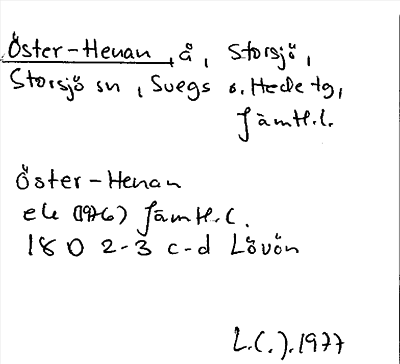 Öster-Henan, å, Storsjö,
Storsjö sn, Svegs o. Hede tg,
Jämtl.l.
Öster-Henan
ek (1976) Jämtl.l.
18 D 2-3 c-d Lövön
L.(.).1977